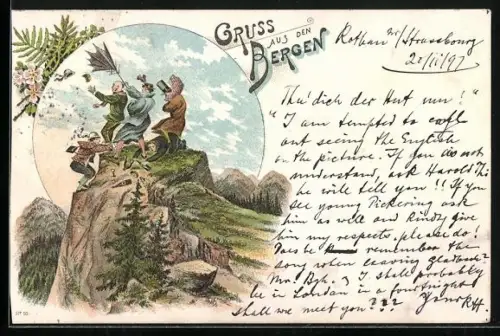 GRUSS
AUS DEN
BERGEN
Rothau bei/Strassbourg
20/III/97
Thu' dich der Hut um!"
"I am tempted to call
out seeing the English
on the picture. If you do not
understand, ask Harold
he will tell you!! If you
see young Pickering ask
him as well and kindly give
him my respects, please do!
Does he remember the
song when leaving
Mr. & I shall probably
be in London in a fourtnight
Shall we meet you???